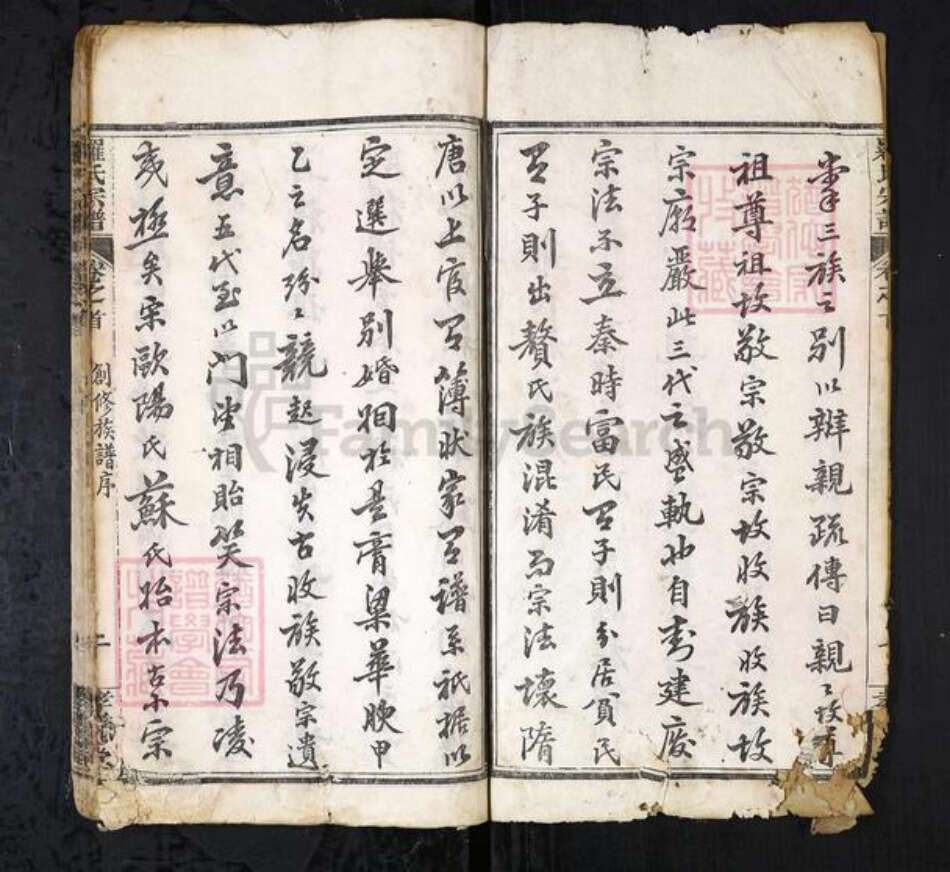 掌三族之別以辨親疏傳曰親親故尊
祖尊祖故敬宗敬宗故收族收族故
宗廟嚴此三代之盛軌也自封建廢
宗法不立秦時富民有子則分居貧民
有子則出贅氏族混淆而宗法壞隋
唐以上官有薄狀家有譜系祇據以
定選舉別婚姻於是膏粱華腴甲
乙之名紛紛競起浸失古收族敬宗遺
意五代至以門望相貽笑宗法乃凌
夷極矣宋歐陽氏蘇氏始本古小宗
羅氏宗譜
卷之首
創修族譜序
二
FamilySearch